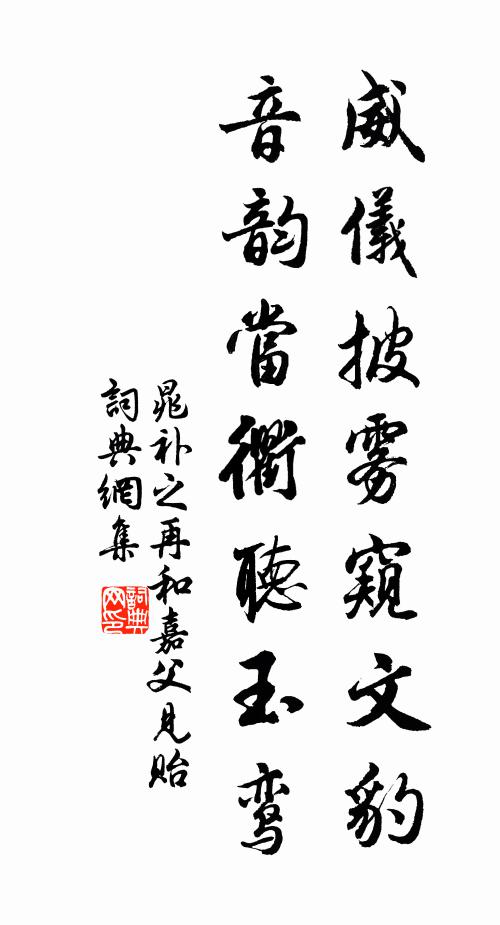 威儀披雾窺文豹
音韵當衢聽玉鸾
晁补之再和嘉父見貽
詞典網集
詞典网印